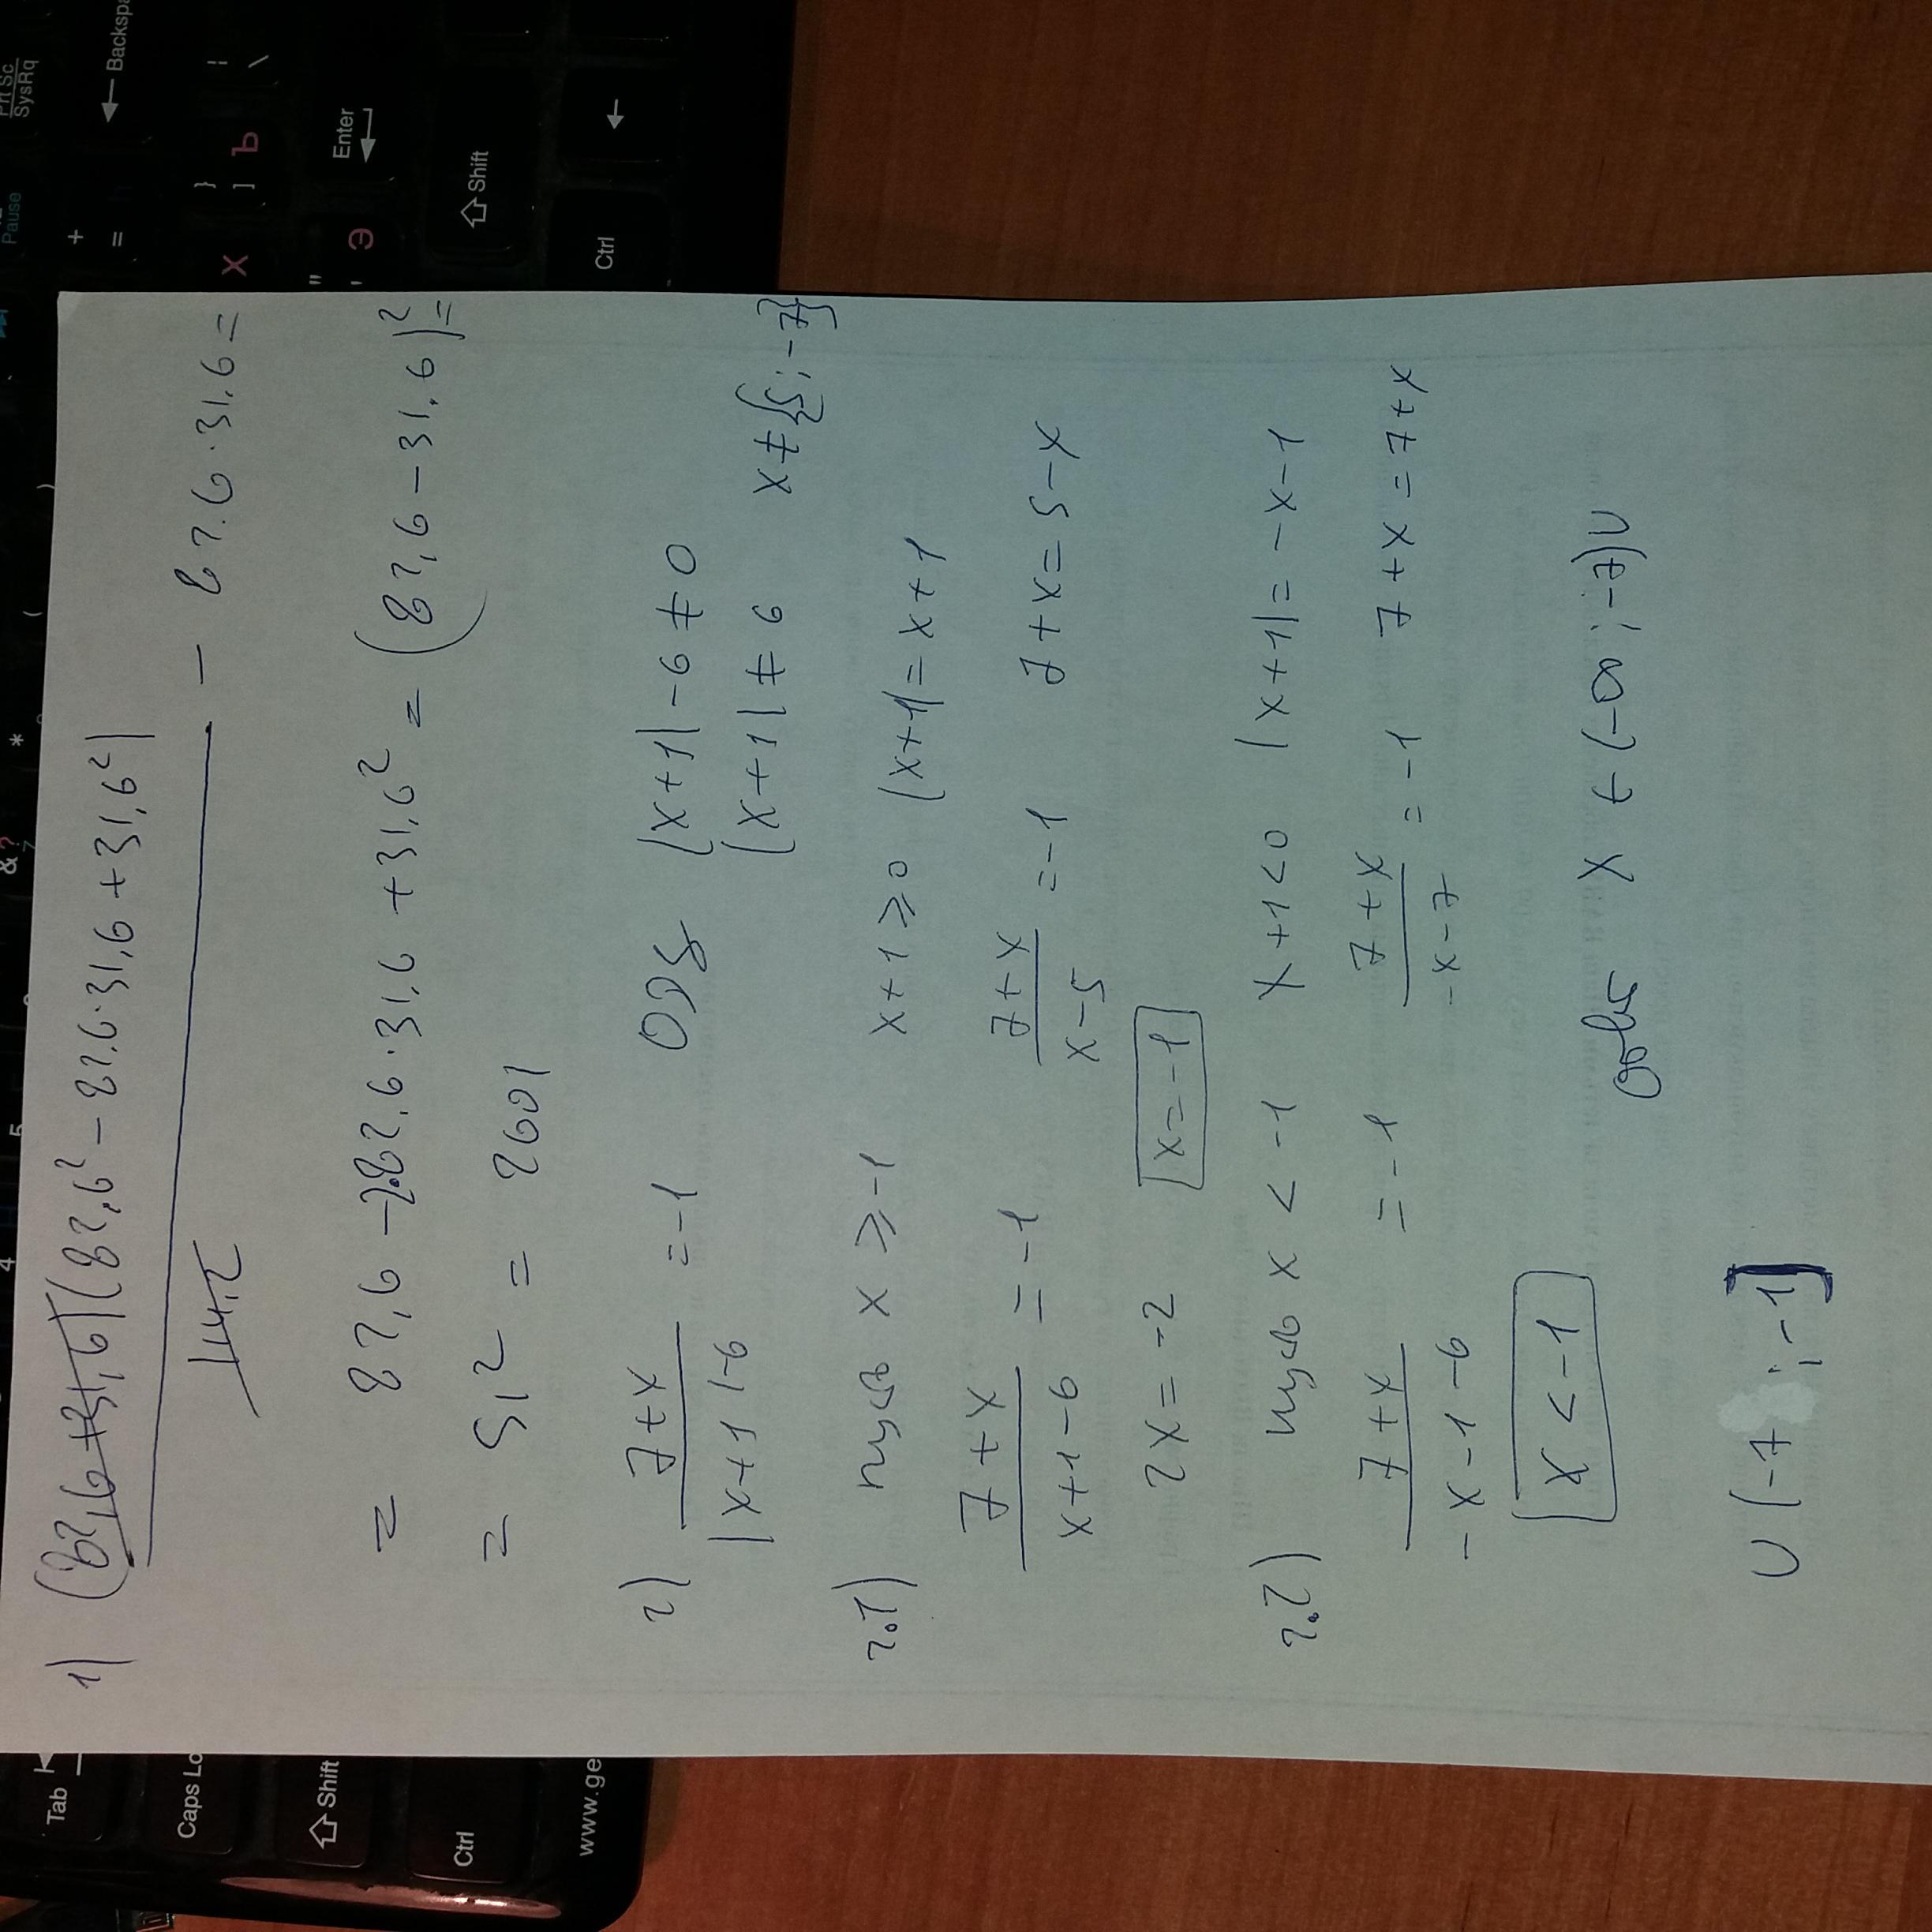 1) (82,6+31,6)(82,6² − 82,6·31,6 + 31,6²)
114,2
− 82,6·31,6 =
= 82,6 − 2·82,6·31,6 + 31,6² = (82,6 − 31,6)² =
= 51² = 2601
2) (7+x)/(|x+1|−6) = −1 ОДЗ |x+1| − 6 ≠ 0
|x+1| ≠ 6 x ≠ {5; −7}
2.1) пусть x ≥ −1 x+1 ≥ 0 |x+1| = x+1
(7+x)/(x+1−6) = −1 (7+x)/(x−5) = −1 7+x = 5−x
2x = −2 x = −1
2.2) пусть x < −1 x+1<0 |x+1| = −x−1
(7+x)/(−x−1−6) = −1 (7+x)/(−x−7) = −1 7+x = 7+x
x < −1 x ∈ (−∞; −7)∪
∪ (−7; −1]
Tab
Caps Lo
Shift
Ctrl
www.ge
Prt Sc
SysRq
Pause
Backspa
+
=
}
]
Ъ
|
\
Х
"
'
Э
Enter
Shift
Ctrl
4
5
&
?
7
*
(
)